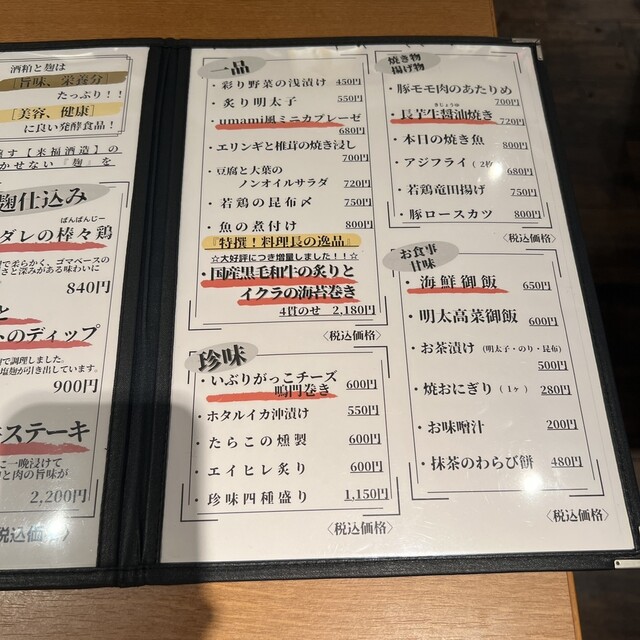 酒粕と麹は
[旨味、栄養分]
たっぷり！！
[美容、健康]
に良い発酵食品！
す【来福酒造】の
かせない『麹』を
麹仕込み
ばんばんじー
ダレの棒々鶏
で柔らかく、ゴマベースの
さと深みがある味わいに
840円
と
トのディップ
で調理しました。
塩麹が引き出しています。
900円
ステーキ
に一晩浸けて
と肉の旨味が
2,200円
税込価格〉
一品
・彩り野菜の浅漬け 450円
・炙り明太子 550円
・umami風ミニカプレーゼ
680円
・エリンギと椎茸の焼き浸し
700円
・豆腐と大葉の
ノンオイルサラダ 720円
・若鶏の昆布〆 750円
・魚の煮付け 800円
『特撰！料理長の逸品』
☆大好評につき増量しました！！☆
・国産黒毛和牛の炙りと
イクラの海苔巻き
4貫のせ 2,180円
〈税込価格〉
珍味
・いぶりがっこチーズ
鳴門巻き 600円
・ホタルイカ沖漬け 550円
・たらこの燻製 600円
・エイヒレ炙り 600円
・珍味四種盛り 1,150円
〈税込価格〉
焼き物
揚げ物
・豚モモ肉のあたりめ
700円
きじょうゆ
・長芋生醤油焼き 720円
・本日の焼き魚 800円
・アジフライ（2枚）
680円
・若鶏竜田揚げ 750円
・豚ロースカツ 800円
〈税込価格〉
お食事
甘味
・海鮮御飯 650円
・明太高菜御飯 600円
・お茶漬け（明太子・のり・昆布）
500円
・焼おにぎり（1ヶ） 280円
・お味噌汁 200円
・抹茶のわらび餅 480円
〈税込価格〉